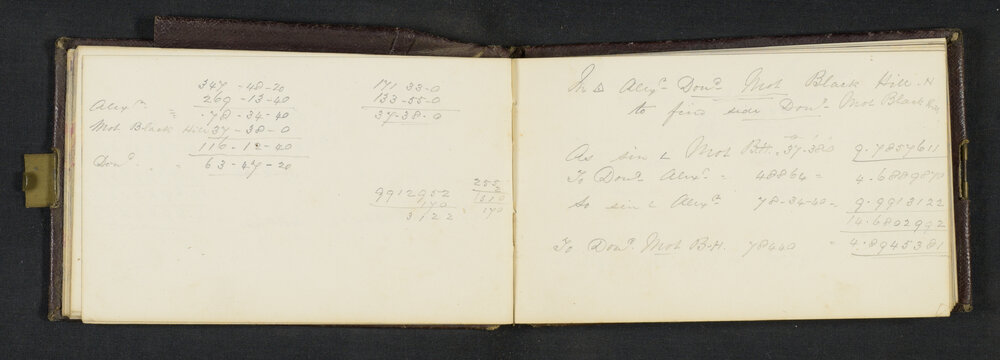 347-48-20
Alexr 269-13-40
78-34-40
Mot Black Hill 37-38-0
116-12-40
Donn 63-47-20
171 33-0
133-55-0
37-38-0
255
2
510
170
9912952
170
3122
In Δ Alexr Donn Mot Black Hill
to find side Donn Mot Black Hill
As sin L Mot B.H. 37-38-0 9.7857611
To Donn Alexr 48864 = 4.6889870
So sin L Alexr 78-34-40 = 9.9913122
14.6802992
To Donn Mot B.H. 78440 = 4.8945381